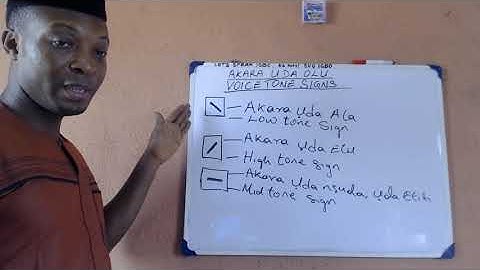 LETS SPEAK IGBO
AKARA UDA OLU
VOICE TONE SIGNS
AKARA Uda ALa
Low tone sign
AKara Uda ELU
High tone sign
AKara Uda nsuda, Uda Etiti
Mid tone sign